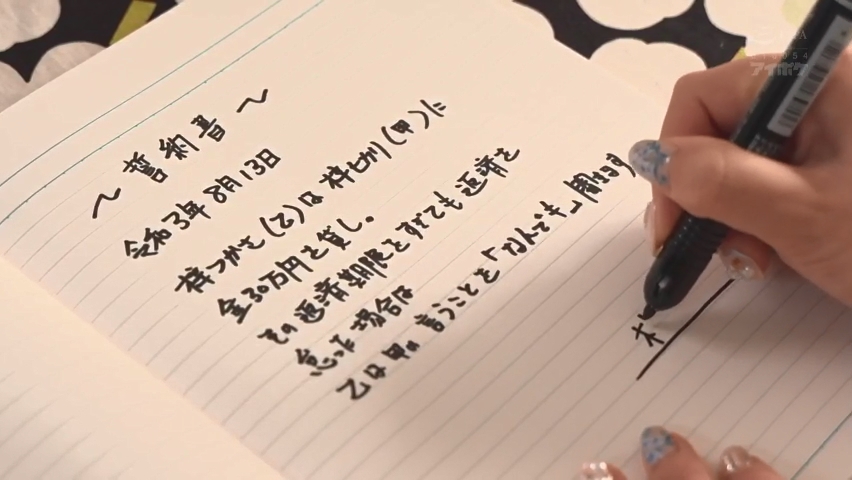 ～誓約書～
令和3年8月13日
梓つかさ(乙)は梓ヒカリ(甲)に
金30万円を貸し。
その返済期限をすぎても返済を
怠った場合は
乙は甲の言うことを「なんでも」聞きます
アイポケ